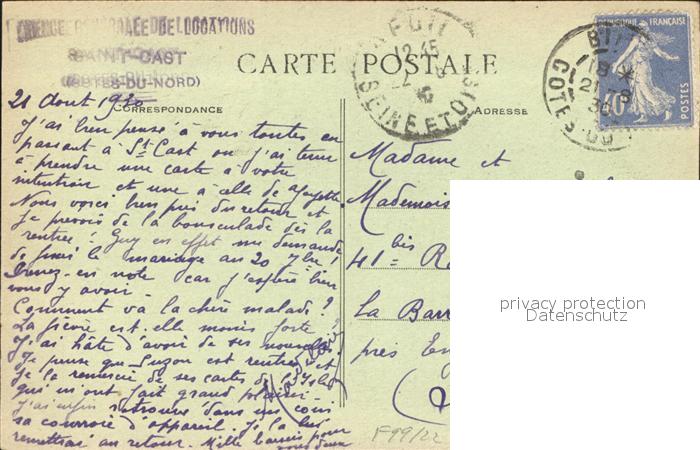 AGENCE GÉNÉRALE DE LOCATIONS
SAINT-CAST
(COTES-DU-NORD)
CARTE POSTALE
CORRESPONDANCE
ADRESSE
RÉPUBLIQUE FRANÇAISE
POSTES
40
12 45
SEINE ET OISE
18
21-8
30
COTES DU
21 Aout 1930
J'ai bien pensé à vous toutes en
passant à St Cast où j'ai tenu
à prendre une carte à votre
intention et une à celle de
Nous voici bien près du retour et
je prévois de la bousculade dès la
rentrée ! Guy en effet me demande
de le mariage au 20 7bre !
Prenez-en note car j'espère bien
vous y avoir -
Comment va la chère malade ?
La fièvre est-elle moins forte ?
J'ai hâte d'avoir de ses nouvelles
Je pense que Suzon est rentrée et
je la remercie de ses cartes de
qui m'ont fait grand plaisir -
J'ai enfin retrouvé dans un coin
sa courroie d'appareil. Je la lui
remettrai au retour. Mille baisers pour
vous deux
Madame et
Mademois
41 bis
La Barr
près En
F99/22
privacy protection
Datenschutz